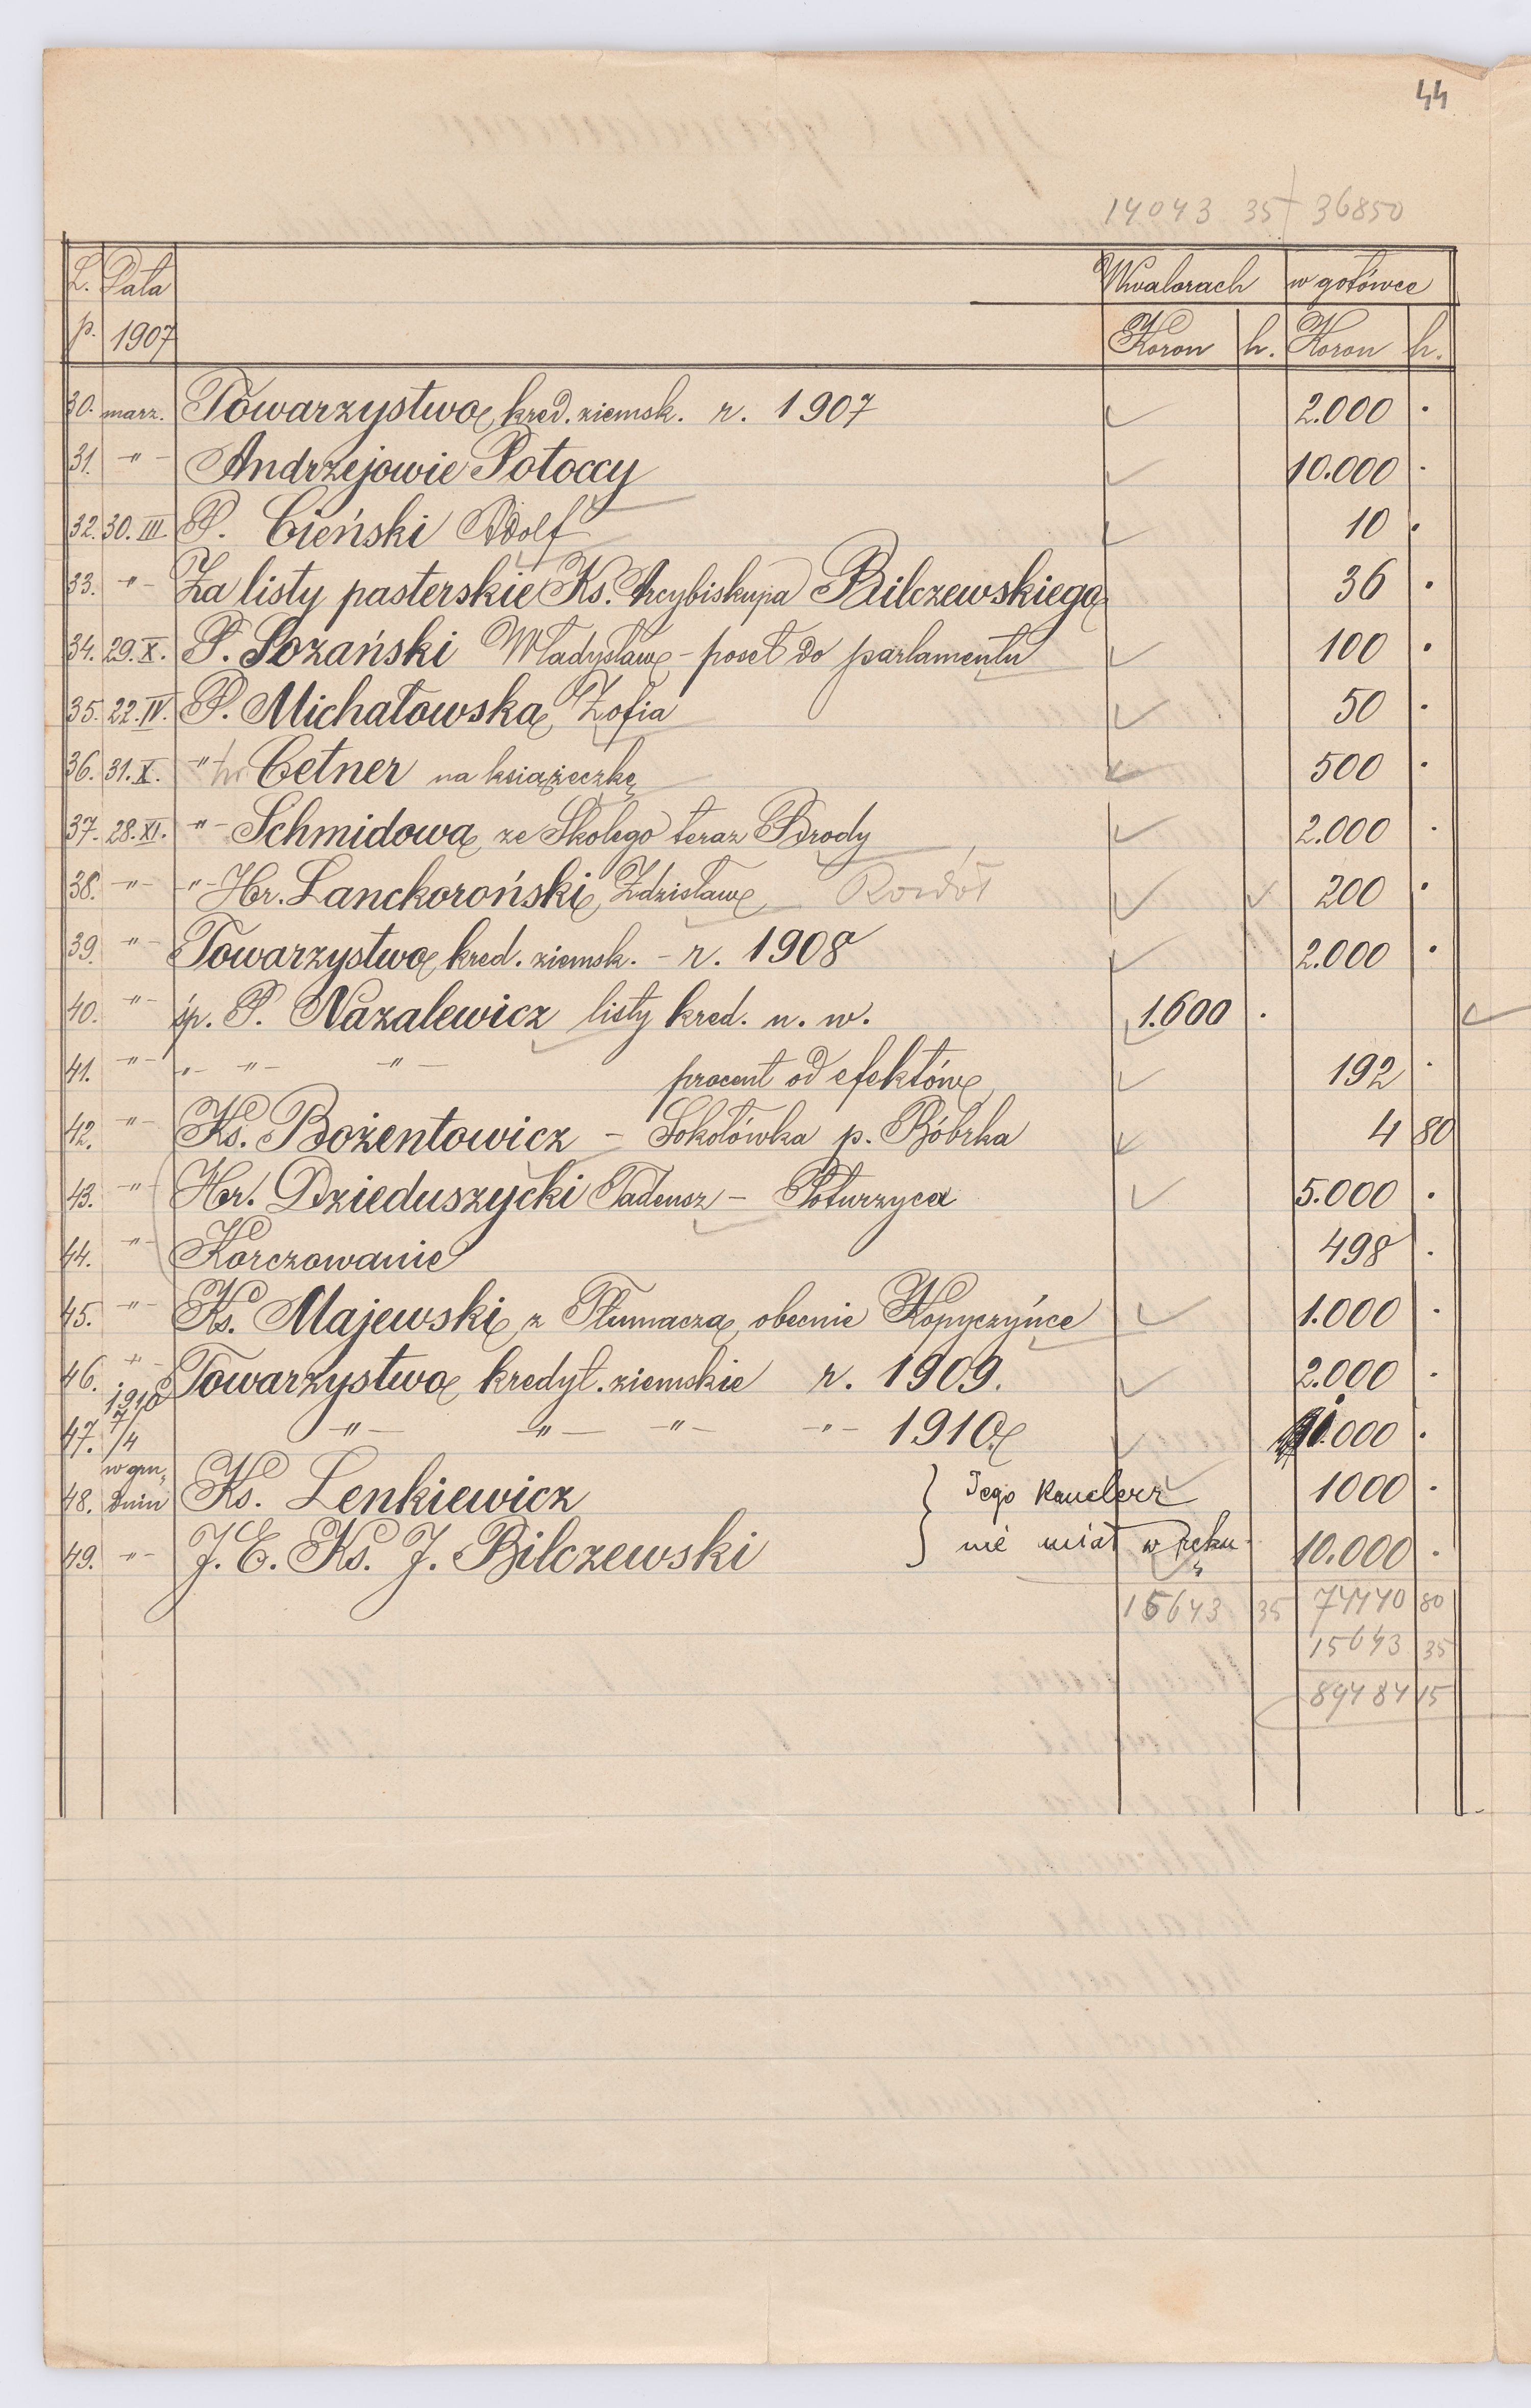 44
14043 35 36850
L. Data W walorach w gotówce
p. 1907 Koron h. Koron h.
30. marz. Towarzystwo kred. ziemsk. r. 1907 2.000 .
31. -"- Andrzejowie Potoccy 10.000 .
32. 30. III. P. Cieński Adolf 10 .
33. -"- Za listy pasterskie Ks. Arcybiskupa Bilczewskiego 36 .
34. 29. X. P. Sozański Władysław - poseł do parlamentu 100 .
35. 22. IV. P. Michałowska Zofia 50 .
36. 31. X. -"- hr Cetner na książeczkę 500 .
37. 28. XI. -"- Schmidowa ze Skolego teraz Brody 2.000 .
38. -"- -"- Hr. Lanckoroński Zdzisław Rozdół 200 .
39. -"- Towarzystwo kred. ziemsk. - r. 1908 2.000 .
40. -"- śp. P. Nazalewicz listy kred. n. w. 1.600 .
41. -"- -"- -"- -"- procent od efektów 192 .
42. -"- Ks. Bożentowicz - Sokołówka p. Bóbrka 4 80
43. -"- Hr. Dzieduszycki Tadeusz - Poturzyca 5.000 .
44. -"- Korczowanie 498 .
45. -"- Ks. Majewski z Tłumacza, obecnie Kopyczyńce 1.000 .
46. -"- Towarzystwo kredyt. ziemskie r. 1909. 2.000 .
1910
47. 7/4 -"- -"- -"- -"- 1910 1.000 .
w gru-
48. dniu Ks. Lenkiewicz } Tego kanclerz 1000 .
49. -"- J. E. Ks. J. Bilczewski } nie miał w ręku 10.000 .
15643 35 74440 80
15643 35
89484 15